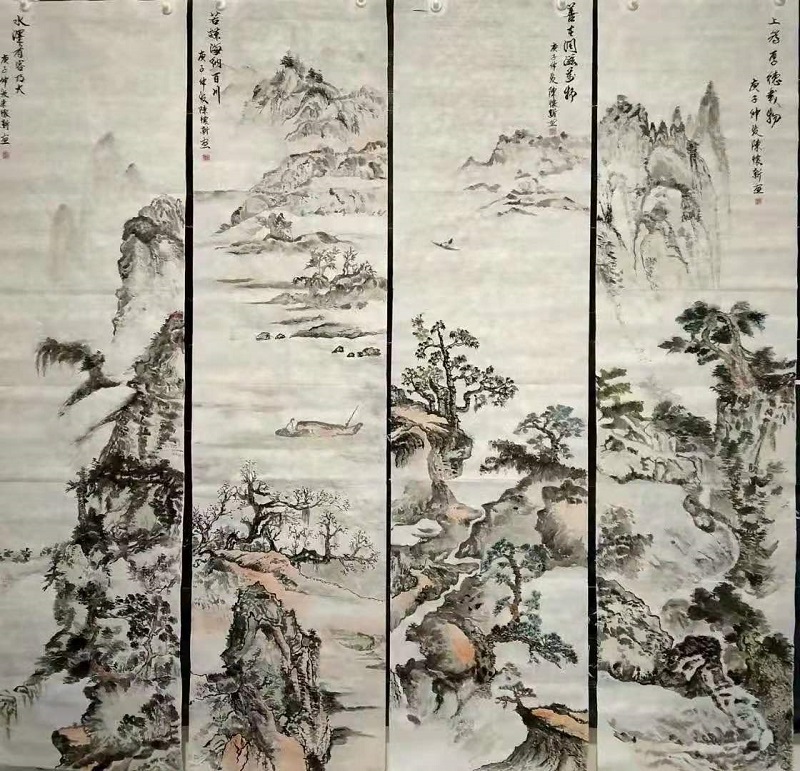 上為厚德載物
庚子仲夏陳懷新画
善在潤滋萬物
庚子仲夏陳懷新画
若謙海納百川
庚子仲夏陳懷新画
水澤有容乃大
庚子仲夏陳懷新画